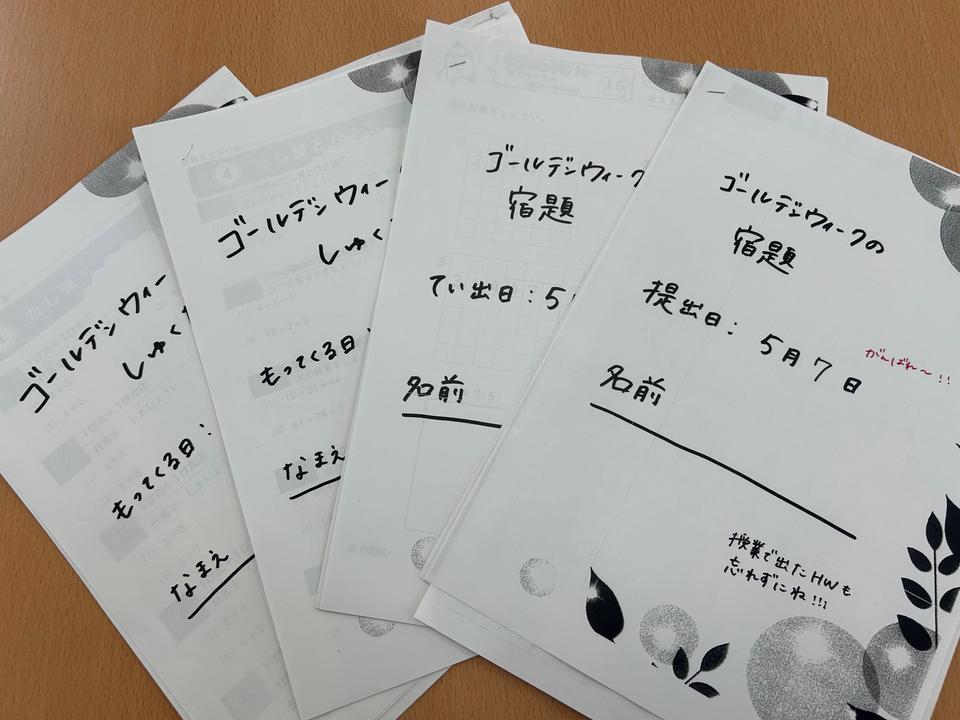 ゴールデンウィー
しゅく
もってくる日:
なまえ
ゴールデンウィー
しゅく
もってくる日:
なまえ
ゴールデンウィーク
宿題
てい出日:5
名前
ゴールデンウィークの
宿題
提出日:5月7日
がんばれ〜!!
名前
授業で出たHWも
忘れずにね!!!